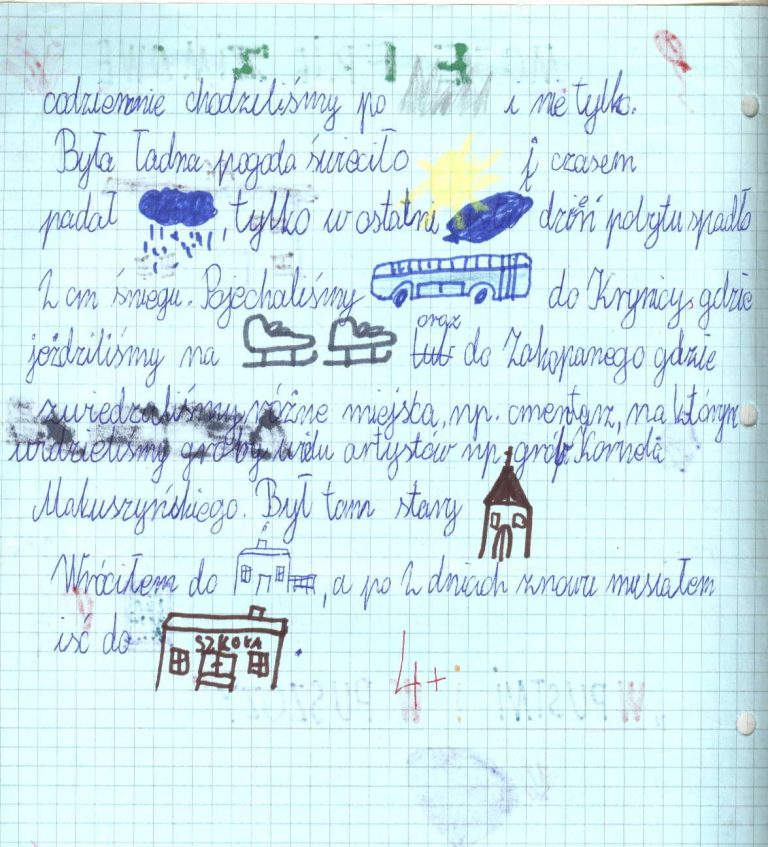 codziennie chodziliśmy po i nie tylko.
Była ładna pogoda świeciło i czasem
padał , tylko w ostatni dzień pobytu spadło
2 cm śniegu. Pojechaliśmy do Krynicy, gdzie
oraz
jeździliśmy na lub do Zakopanego gdzie
zwiedzaliśmy różne miejska, np. cmentarz, na którym
widzieliśmy groby wielu artystów np. grób Kornela
Makuszyńskiego. Był tam stary
Wróciłem do , a po 2 dniach znowu musiałem
iść do SZKOŁA .
4+
"W PUSTYNI I W PUSZCZY"